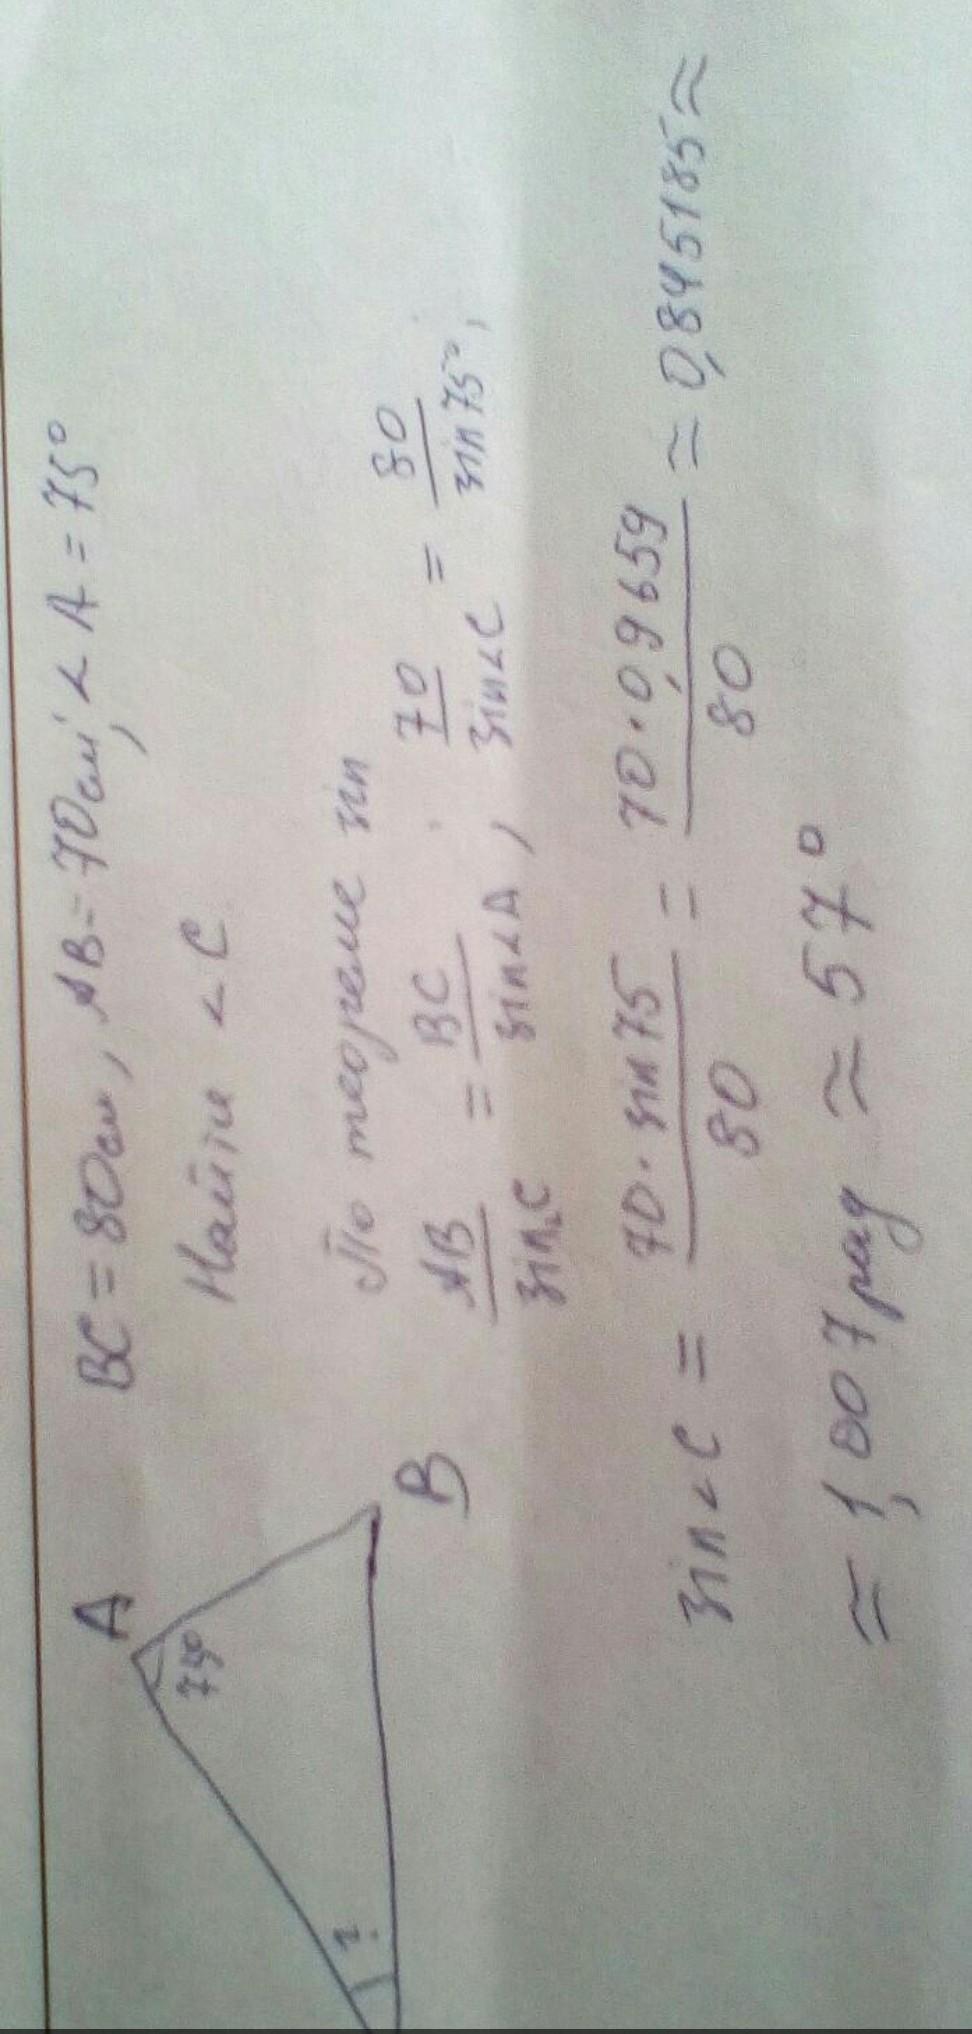 BC = 80см, AB = 70см, < A = 75°
Найти < C
По теореме sin
AB/sin<C = BC/sin<A, 70/sin<C = 80/sin75°,
sin<C = 70·sin75/80 = 70·0,9659/80 ≈ 0,845185 ≈
≈ 1,007рад ≈ 57°
A
75°
B
?